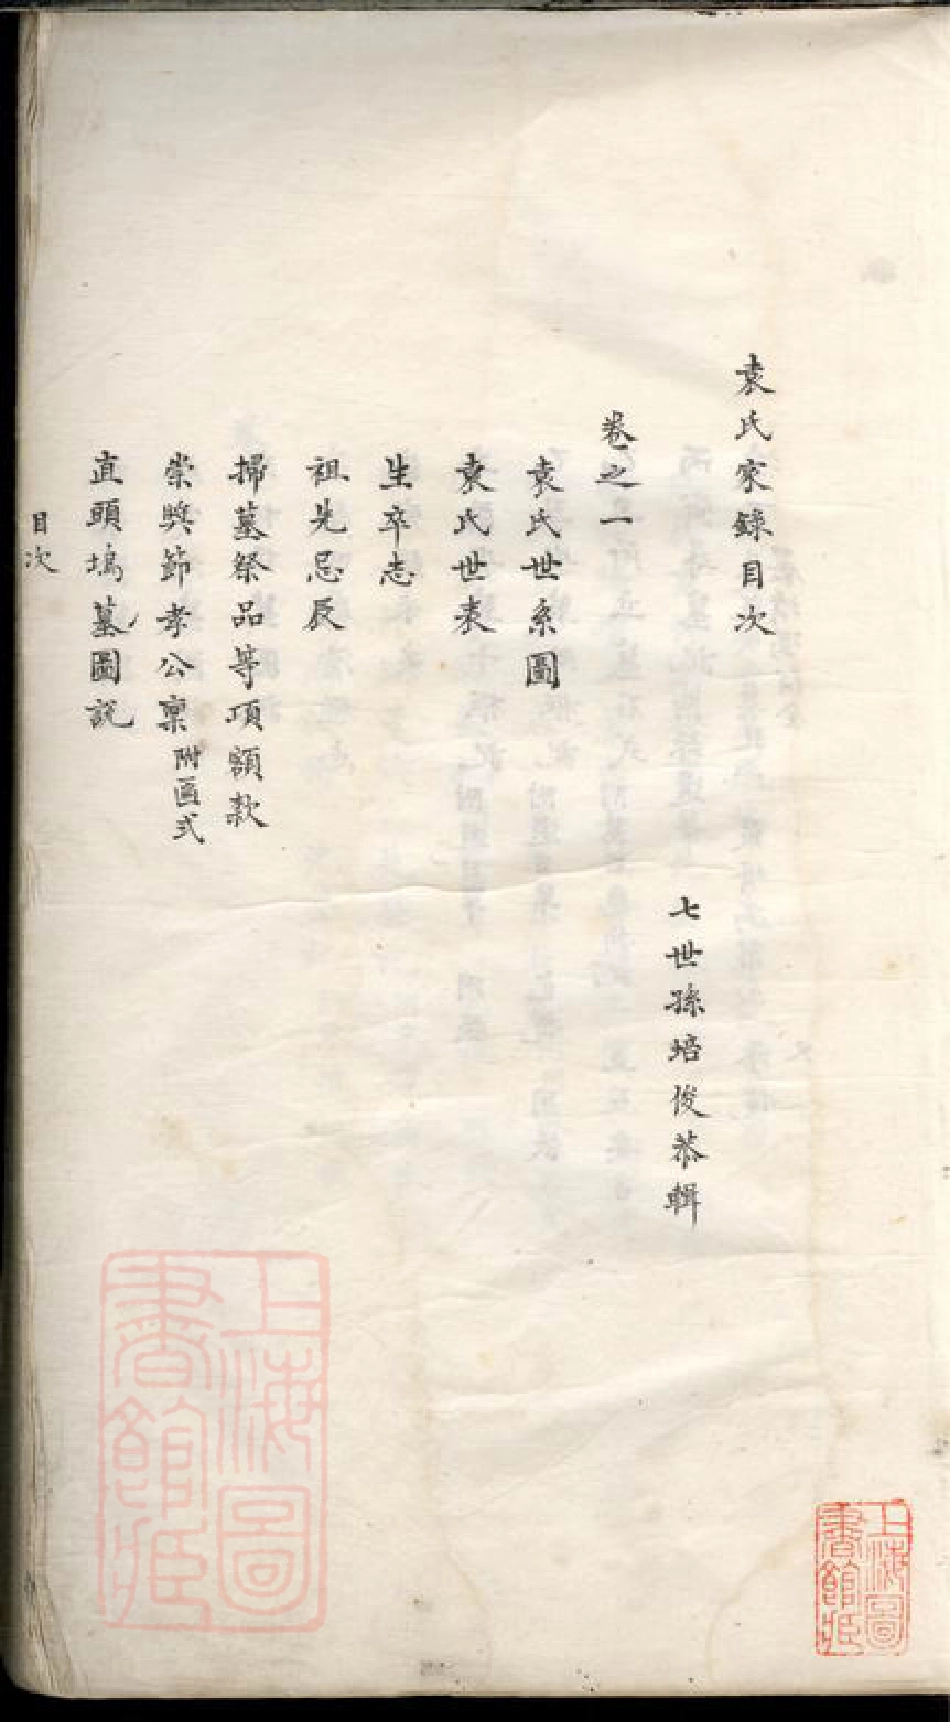 袁氏家錄目次
七世孫培俊恭輯
卷之一
袁氏世系圖
袁氏世表
生卒志
祖先忌辰
掃墓祭品等項額款
崇獎節孝公稟附匾式
直頭塢墓圖說
目次
上海圖書館藏
上海圖書館藏